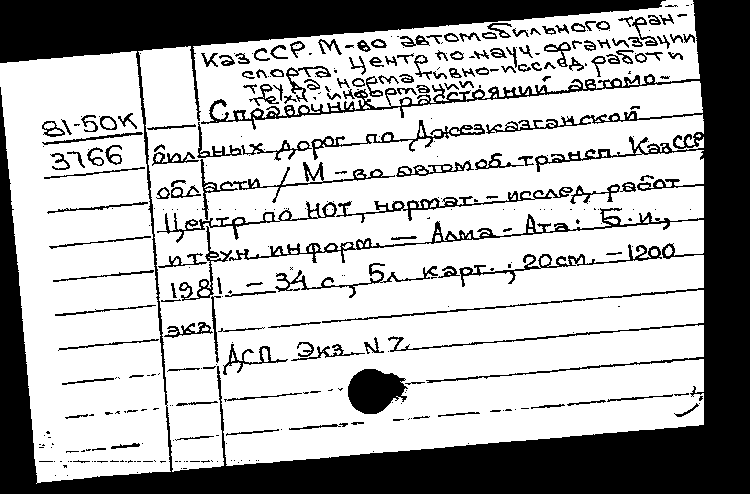 КазССР. М-во автомобильного тран-
спорта. Центр по науч. организации
труда, нормативно-послед. работ и
техн. информации.
Справочник расстояний автомо-
81-50К
3766
бильных дорог по Джезказганской
области / М-во автомоб. трансп. КазССР,
Центр по НОТ, нормат. – исслед. работ
и техн. информ. — Алма-Ата: Б. и.,
1981. – 34 с., 5л. карт.; 20см. – 1200
экз.
ДСП. Экз. N 7.